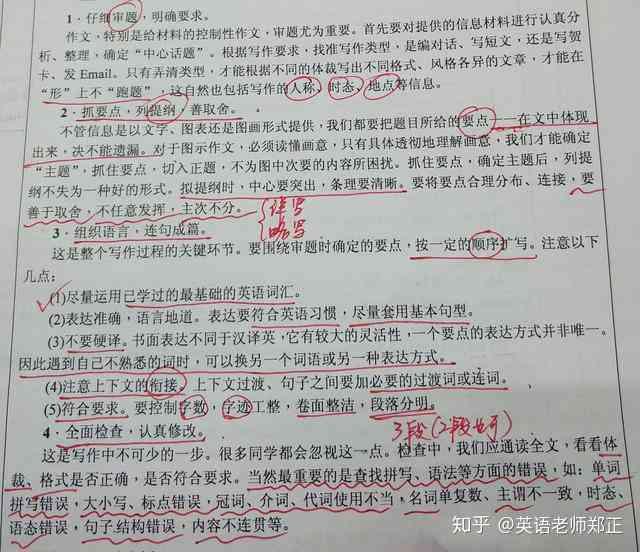 1．仔细审题，明确要求。
作文，特别是给材料的控制性作文，审题尤为重要。首先要对提供的信息材料进行认真分
析、整理，确定“中心话题”。根据写作要求，找准写作类型，是编对话、写短文，还是写贺
卡、发 Email。只有弄清类型，才能根据不同的体裁写出不同格式、风格各异的文章，才能在
“形”上不“跑题”，这自然也包括写作的人称、时态、地点等信息。
2．抓要点，列提纲，善取舍。
不管信息是以文字、图表还是图画形式提供，我们都要把题目所给的要点一一在文中体现
出来，决不能遗漏。对于图示作文，必须读懂画意，只有具体透彻地理解画意，我们才能确定
“主题”，抓住要点，切入正题，不为图中次要的内容所困扰。抓住要点，确定主题后，列提
纲不失为一种好的形式。拟提纲时，中心要突出，条理要清晰。要将要点合理分布、连接，要
善于取舍，不任意发挥，主次不分。
详写
略写
3．组织语言，连句成篇。
这是整个写作过程的关键环节。要围绕审题时确定的要点，按一定的顺序扩写。注意以下
几点：
(1)尽量运用已学过的最基础的英语词汇。
(2)表达准确，语言地道。表达要符合英语习惯，尽量套用基本句型。
(3)不要硬译。书面表达不同于汉译英，它有较大的灵活性，一个要点的表达方式并非唯一。
因此遇到自己不熟悉的词时，可以换另一个词语或另一种表达方式。
(4)注意上下文的衔接。上下文过渡、句子之间要加必要的过渡词或连词。
(5)符合要求。要控制字数，字迹工整，卷面整洁，段落分明。
3段(2段也可)
4．全面检查，认真修改。
这是写作中不可少的一步。很多同学都会忽视这一点。检查中，我们应通读全文，看看体
裁、格式是否正确，是否符合要求。当然最重要的是查找拼写、语法等方面的错误，如：单词
拼写错误，大小写、标点错误，冠词、介词、代词使用不当，名词单复数、主谓不一致，时态、
语态错误，句子结构错误，内容不连贯等。
知乎 @英语老师郑正